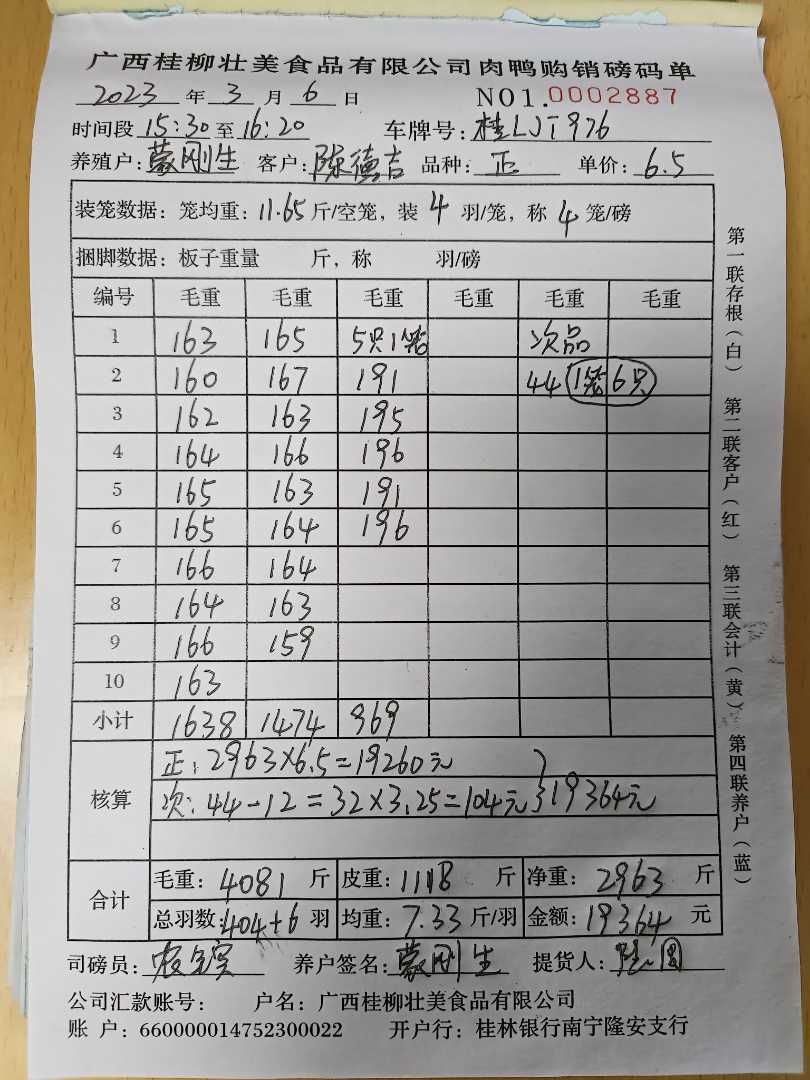 广西桂柳壮美食品有限公司肉鸭购销磅码单
2023 年 3 月 6 日 NO1.0002887
时间段 15:30 至 16:20 车牌号: 桂LJT976
养殖户: 蒙刚生 客户: 陈德吉 品种: 正 单价: 6.5
装笼数据: 笼均重: 11.65 斤/空笼, 装 4 羽/笼, 称 4 笼/磅
捆脚数据: 板子重量 斤, 称 羽/磅
编号 毛重 毛重 毛重 毛重 毛重 毛重
1 163 165 5只1笼 次品
2 160 167 191 44 1笼6只
3 162 163 195
4 164 166 196
5 165 163 191
6 165 164 196
7 166 164
8 164 163
9 166 159
10 163
小计 1638 1474 969
核算
正: 2963×6.5=19260元
次: 44-12=32×3.25=104元 }19364元
合计
毛重: 4081 斤 皮重: 1118 斤 净重: 2963 斤
总羽数: 404+6 羽 均重: 7.33 斤/羽 金额: 19364 元
司磅员: 养户签名: 蒙刚生 提货人:
公司汇款账号: 户名: 广西桂柳壮美食品有限公司
账 户: 660000014752300022 开户行: 桂林银行南宁隆安支行
第一联存根(白) 第二联客户(红) 第三联会计(黄) 第四联养户(蓝)